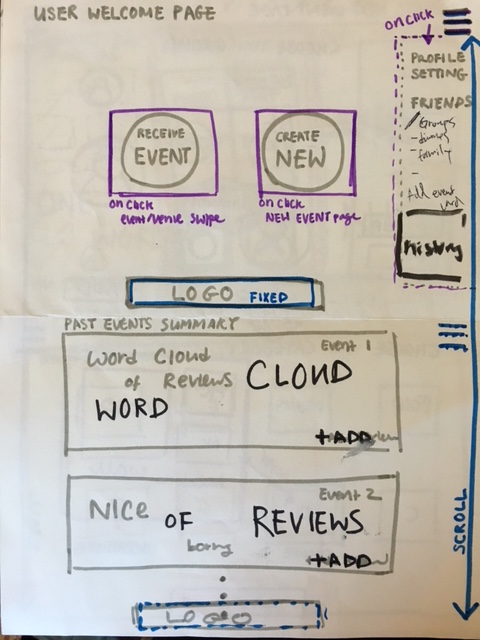 USER WELCOME PAGE
ON CLICK
PROFILE
SETTING
FRIENDS
Groups
- family
Add event
History
RECEIVE
EVENT
CREATE
NEW
ON CLICK
EVENT/VENUE SWIPE
ON CLICK
NEW EVENT PAGE
LOGO FIXED
PAST EVENTS SUMMARY
Event 1
Word Cloud
of Reviews CLOUD
WORD
+ADD
Event 2
NICE OF REVIEWS
boring
+ADD
SCROLL
LOGO